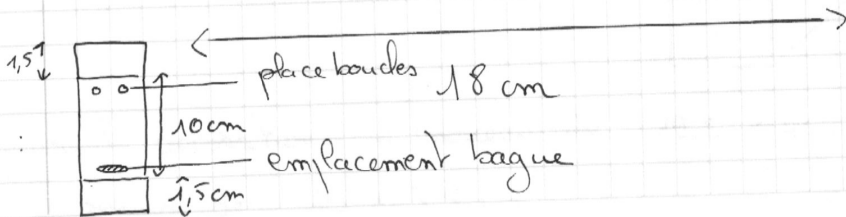 1,5
place boucles 18 cm
10cm
emplacement bague
1,5cm